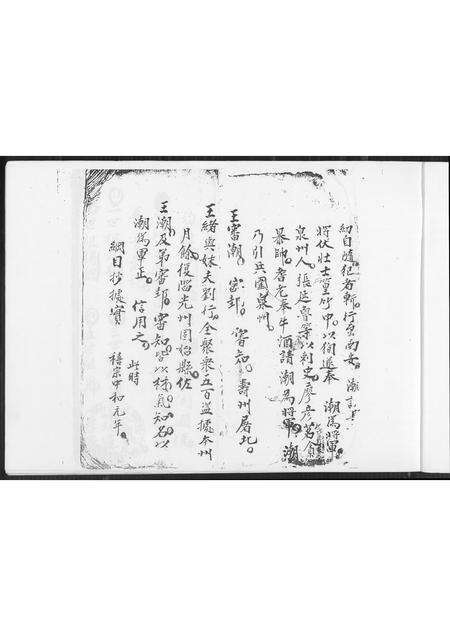 幼自隨犯者斬行至南安
將伏壯士篁竹中以伺道奉潮為將軍
泉州人張延魯等以刺史廖彥若貪
暴帥耆老奉牛酒請潮為將軍潮
乃引兵圍泉州
王審潮審邽審知壽州屠兒
王緒與妹夫劉行全聚眾五百盜據本州
月餘復陷光州固始縣佐
王潮及弟審邽審知皆以材氣知名以
潮為軍正信用之此時
綱目抄據實僖宗中和元年